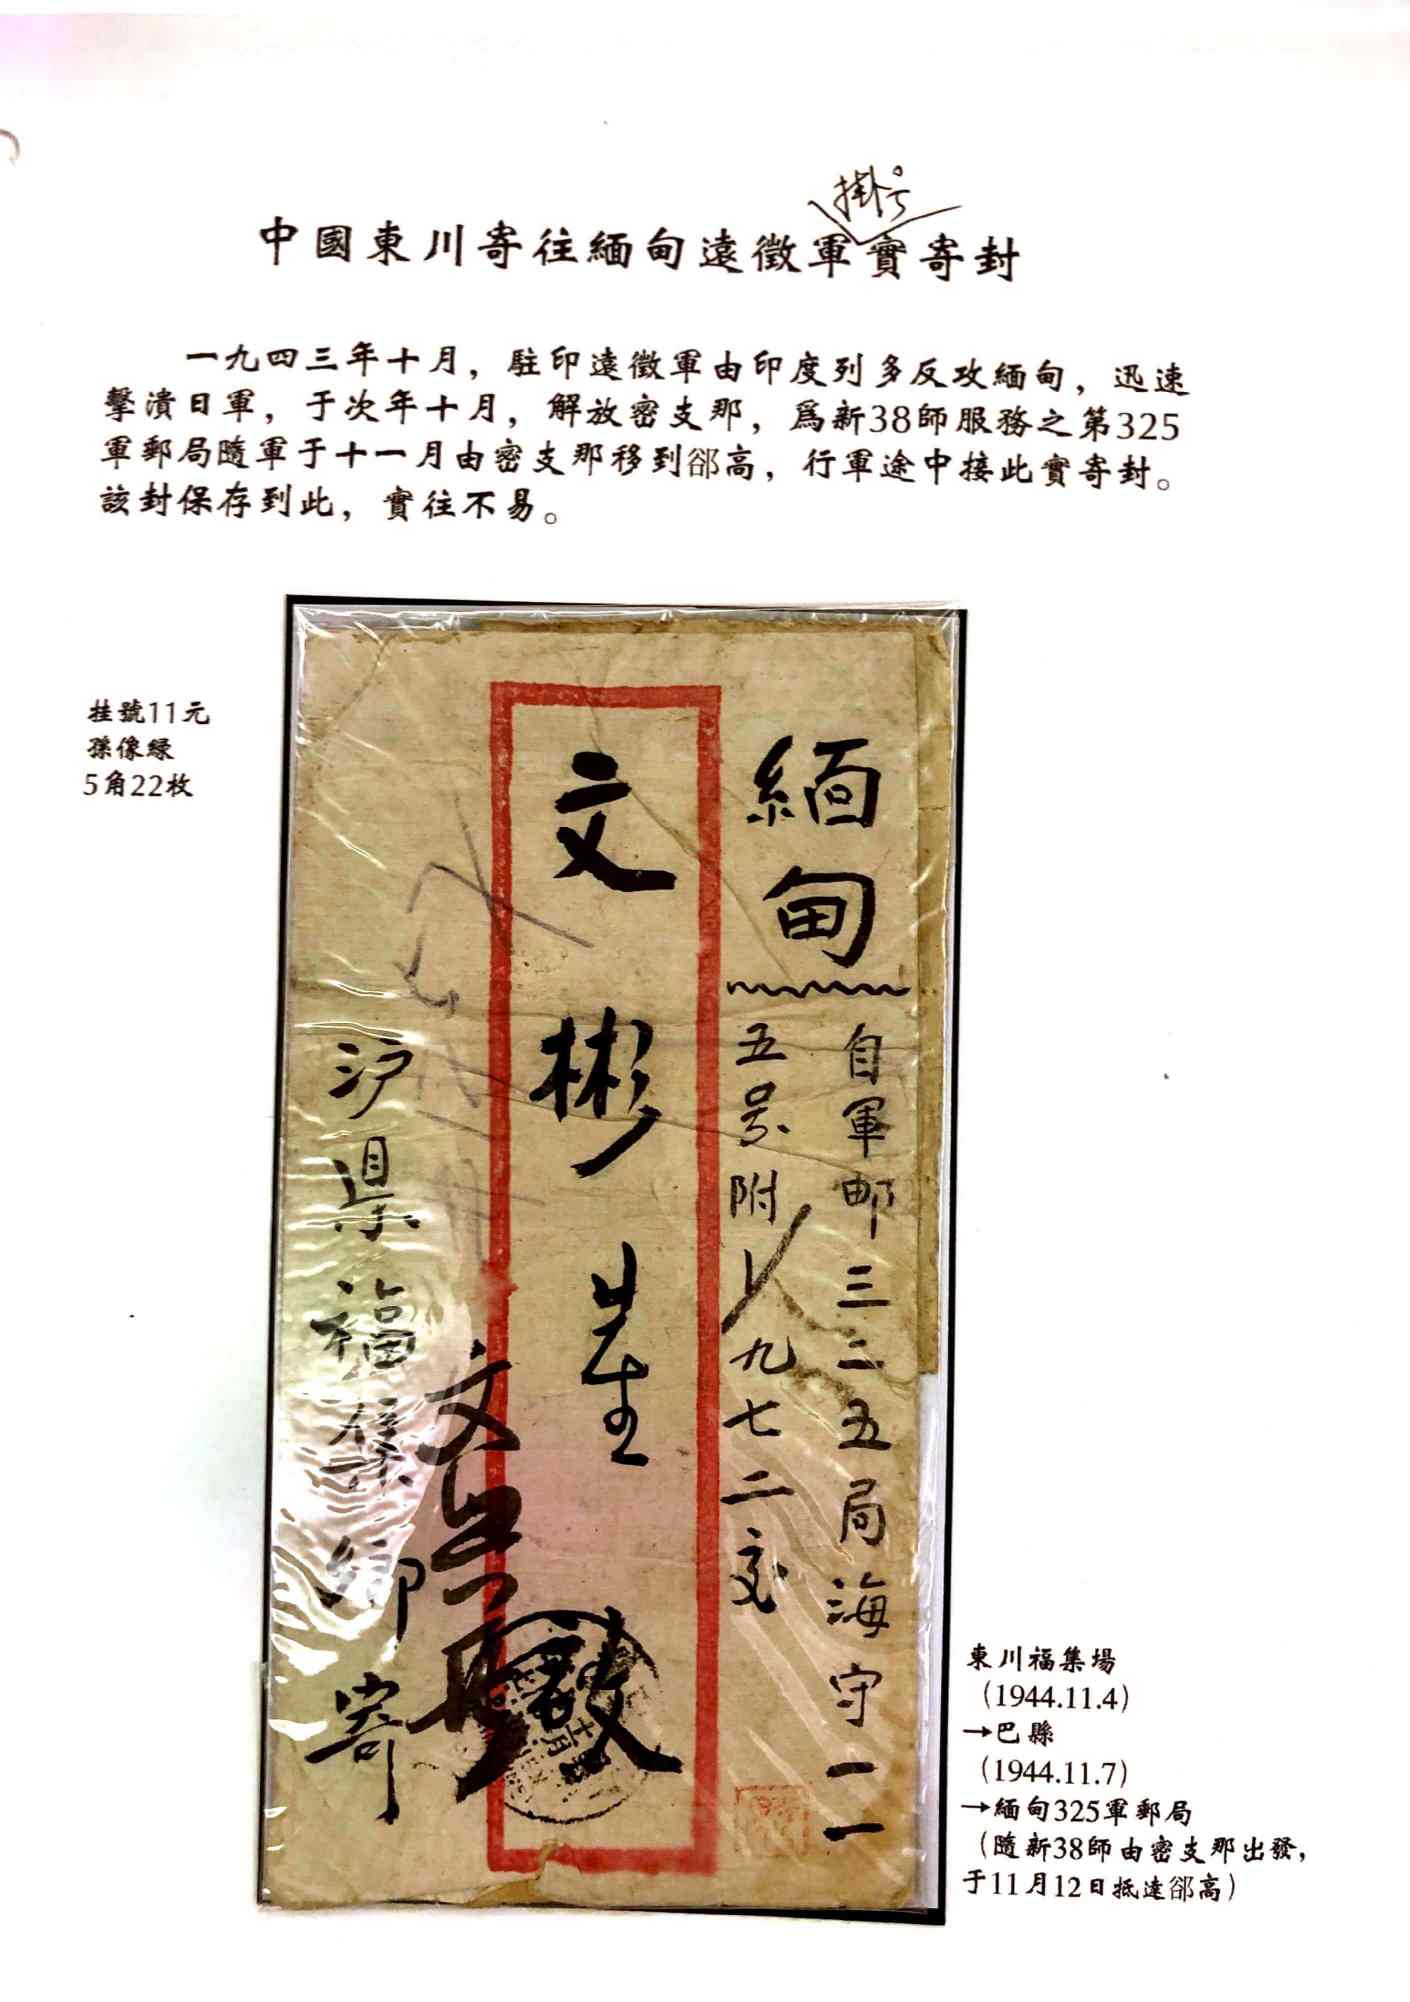 掛号
中國東川寄往緬甸遠徵軍實寄封
一九四三年十月，駐印遠徵軍由印度列多反攻緬甸，迅速
擊潰日軍，于次年十月，解放密支那，爲新38師服務之第325
軍郵局隨軍于十一月由密支那移到郤高，行軍途中接此實寄封。
該封保存到此，實往不易。
挂號11元
孫像綠
5角22枚
緬甸
自軍邮三二五局海守一一
五号附
九七二交
文彬生啟
沪県福集鄉寄
東川福集場
（1944.11.4）
→巴縣
（1944.11.7）
→緬甸325軍郵局
（隨新38師由密支那出發，
于11月12日抵達郤高）